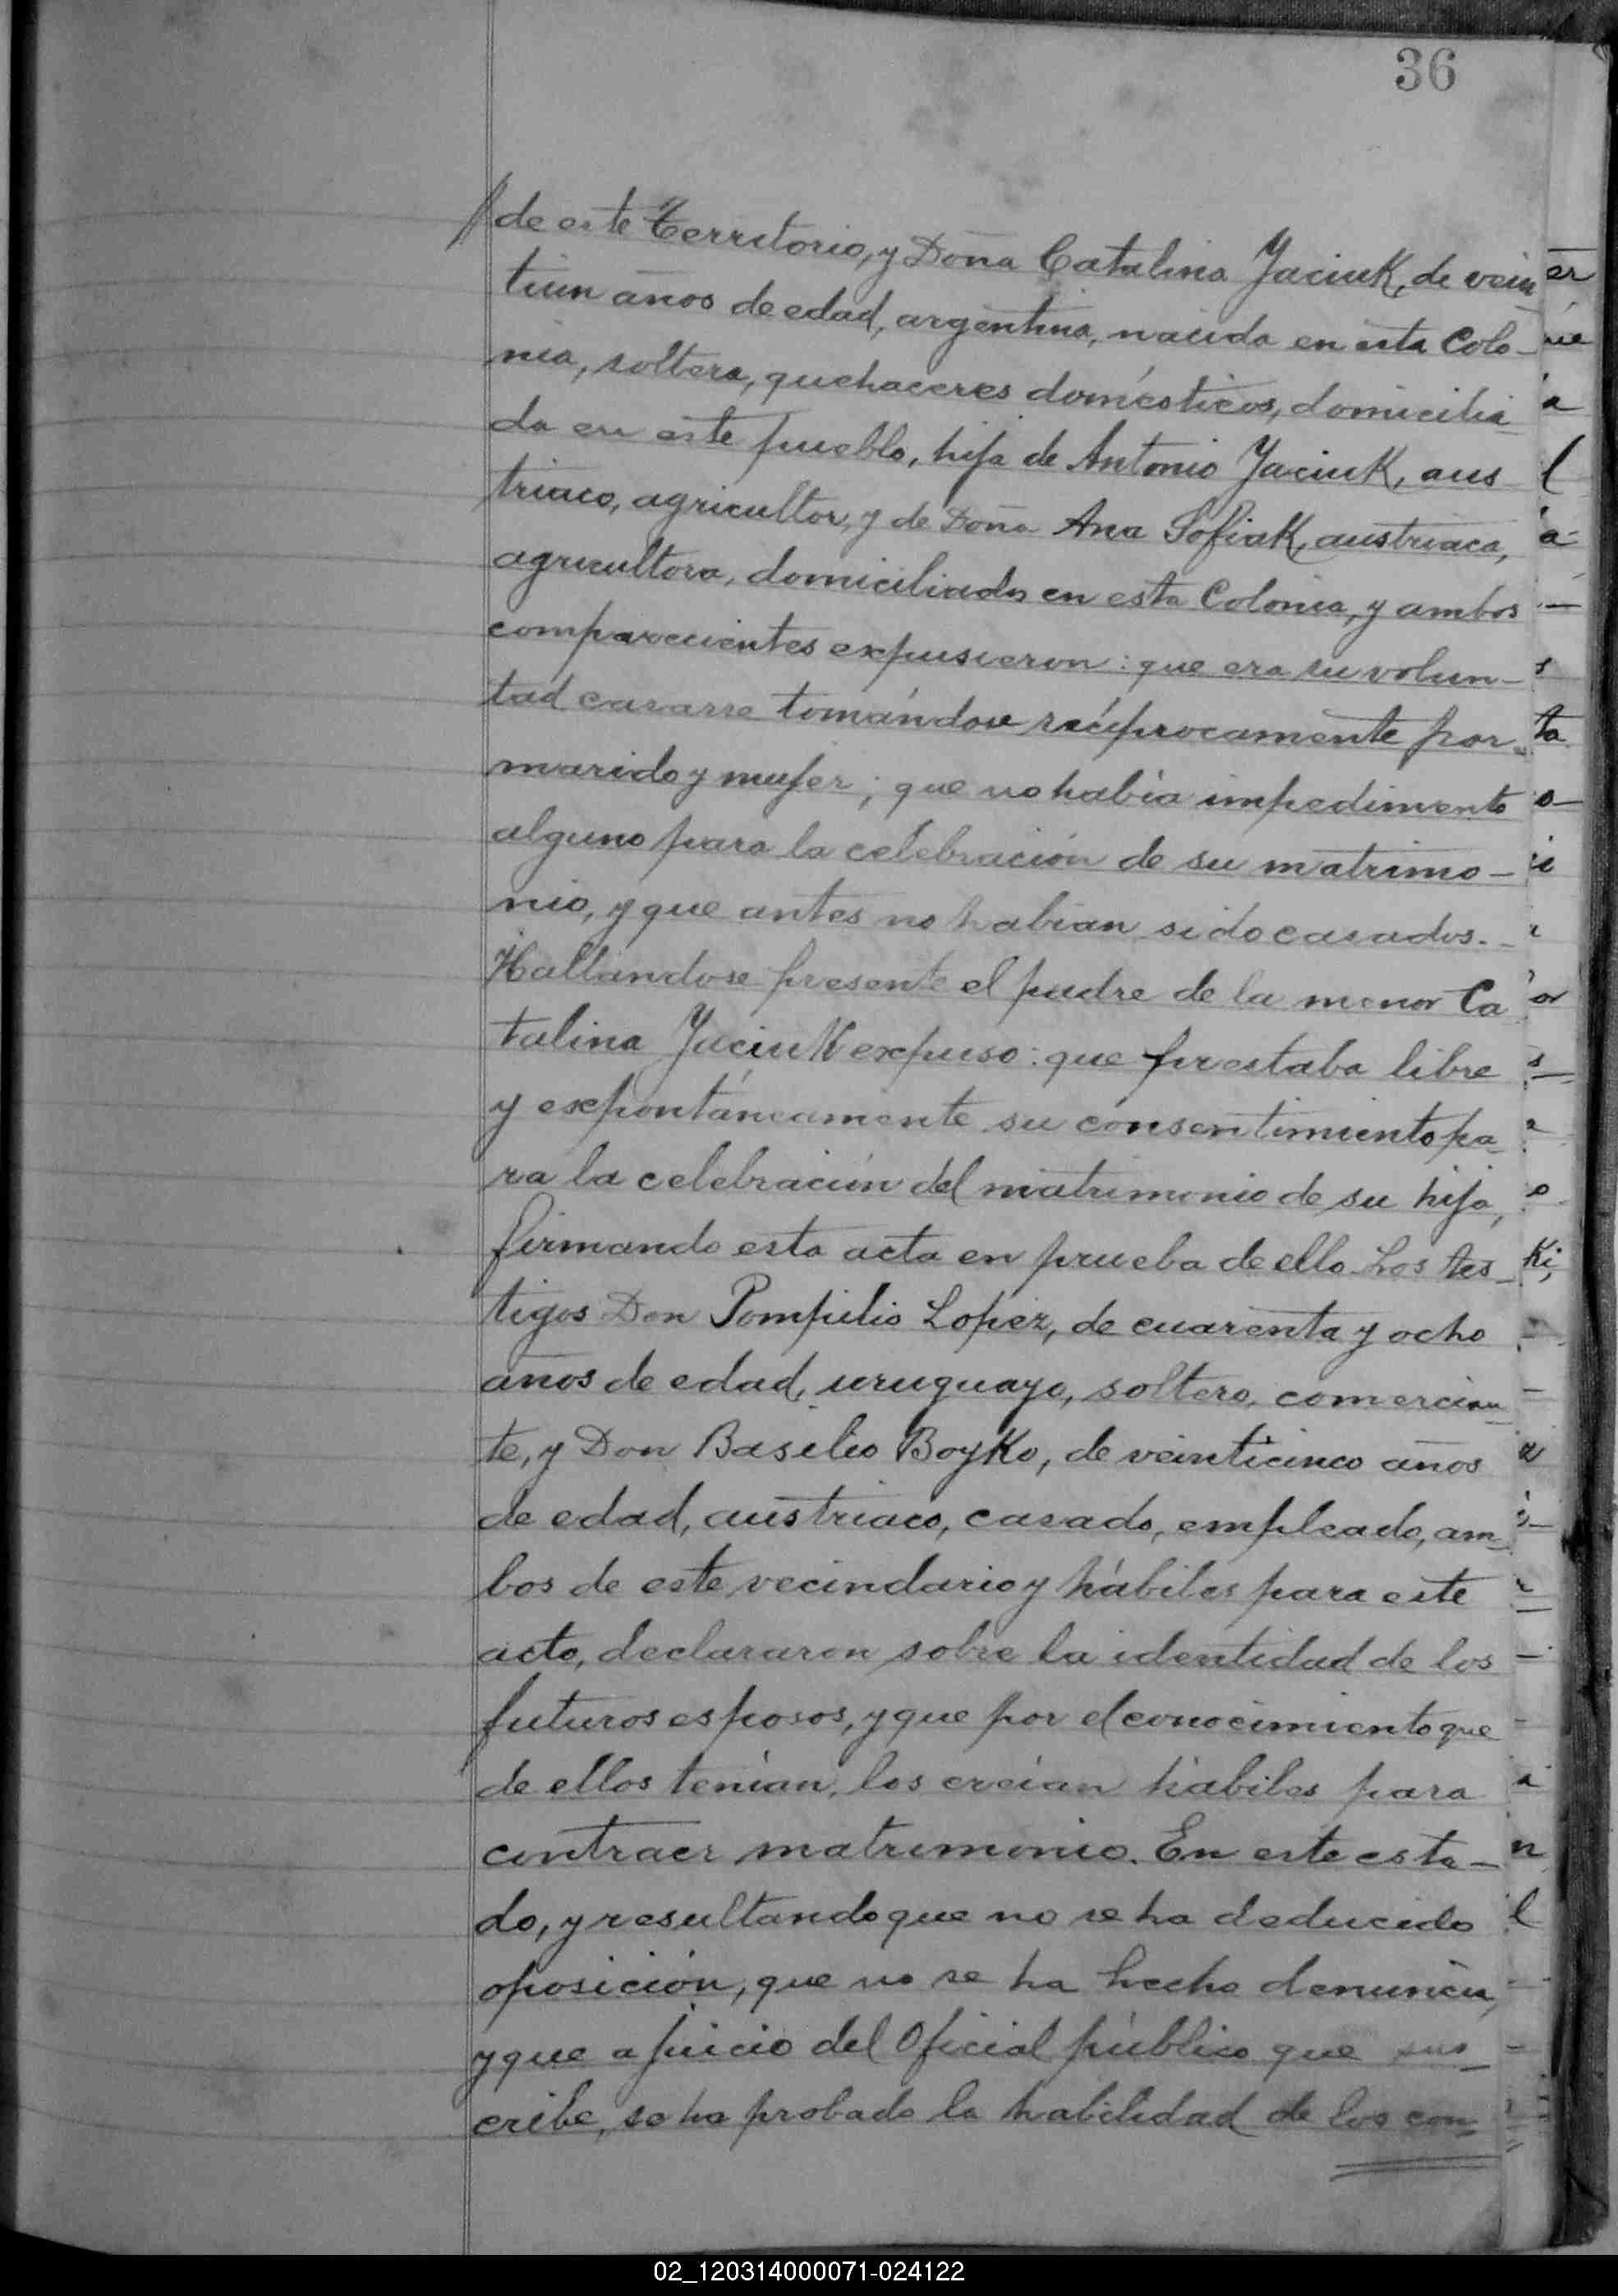 36
// de este Territorio, y Doña Catalina Jaciuk, de vein
tiun años de edad, argentina, nacida en esta Colo-
nia, soltera, quehaceres domésticos, domicilia
da en este pueblo, hija de Antonio Jaciuk, aus
triaco, agricultor, y de Doña Ana Sofiak, austriaca,
agricultora, domiciliados en esta Colonia, y ambos
comparecientes expusieron: que era su volun-
tad casarse tomándose recíprocamente por
marido y mujer; que no había impedimento
alguno para la celebración de su matrimo-
nio, y que antes no habían sido casados.-
Hallandose presente el padre de la menor Ca
talina Jaciuk expuso: que prestaba libre
y expontáneamente su consentimiento pa
ra la celebración del matrimonio de su hija,
firmando esta acta en prueba de ello. Los tes-
tigos Don Pompilio Lopez, de cuarenta y ocho
años de edad, uruguayo, soltero, comercian
te, y Don Basilio Boyko, de veinticinco años
de edad, austriaco, casado, empleado, am-
bos de este vecindario y hábiles para este
acto, declararon sobre la identidad de los
futuros esposos, y que por el conocimiento que
de ellos tenían, los creían hábiles para
contraer matrimonio. En este esta-
do, y resultando que no se ha deducido
oposición, que no se ha hecho denuncia,
y que a juicio del Oficial público que sus-
cribe, se ha probado la habilidad de los con-
02_120314000071-024122